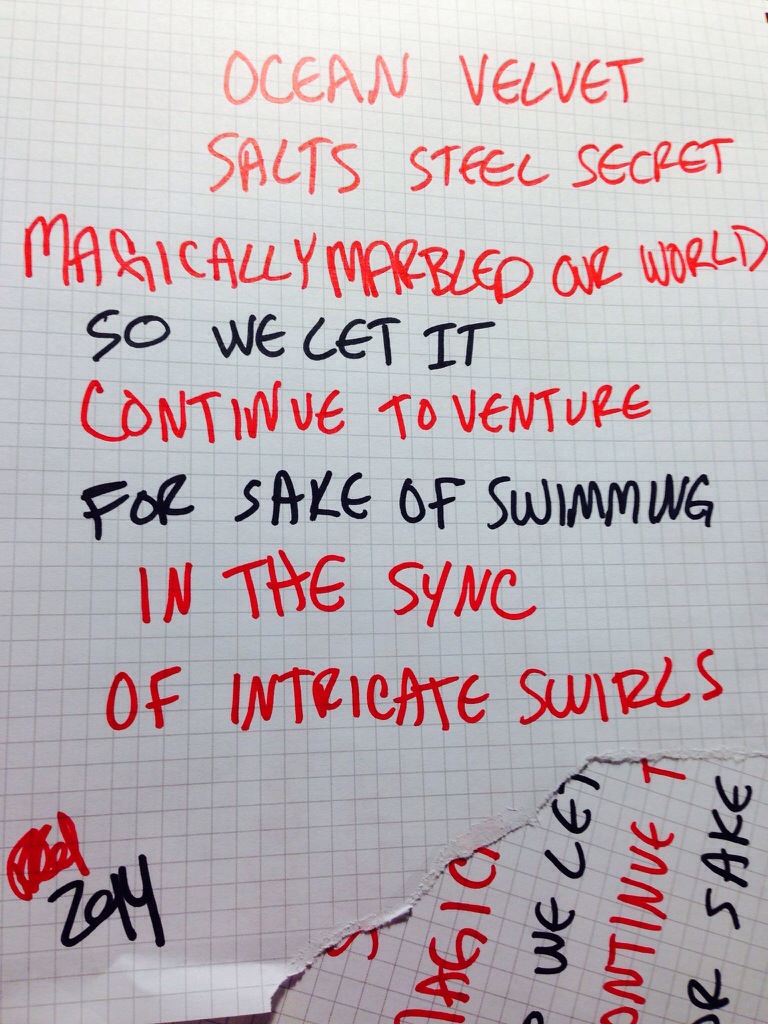 OCEAN VELVET
SALTS STEEL SECRET
MAGICALLY MARBLED OUR WORLD
SO WE LET IT
CONTINUE TO VENTURE
FOR SAKE OF SWIMMING
IN THE SYNC
OF INTRICATE SWIRLS
2014
S
MAGICA
O WE LET
ONTINUE T
OR SAKE